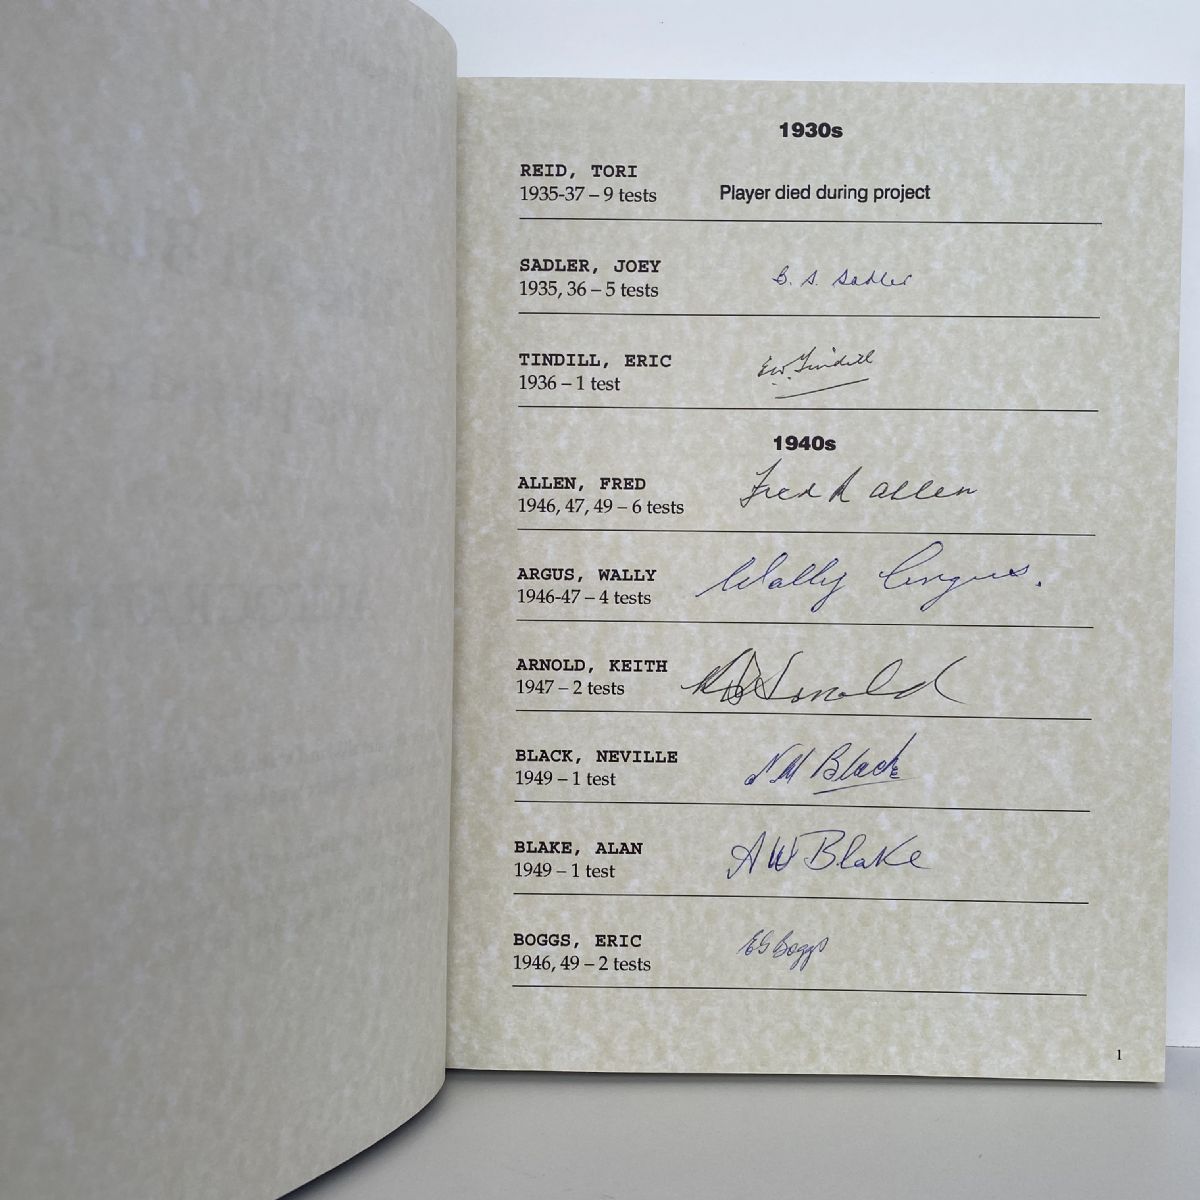 1930s
REID, TORI
1935-37 – 9 tests Player died during project
SADLER, JOEY
1935, 36 – 5 tests B. S. Sadler
TINDILL, ERIC
1936 – 1 test E W Tindill
1940s
ALLEN, FRED
1946, 47, 49 – 6 tests Fred R Allen
ARGUS, WALLY
1946-47 – 4 tests Wally Argus.
ARNOLD, KEITH
1947 – 2 tests Arnold
BLACK, NEVILLE
1949 – 1 test N W Black
BLAKE, ALAN
1949 – 1 test A W Blake
BOGGS, ERIC
1946, 49 – 2 tests E G Boggs
1